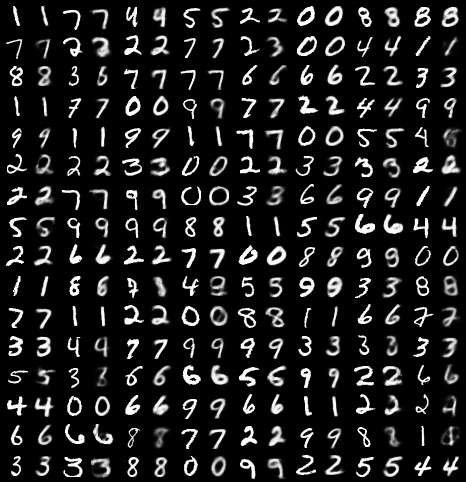 1 1 7 7 4 4 5 5 2 2 0 0 8 8 8 8
7 7 2 2 2 2 7 7 2 3 0 0 4 4 1 1
8 8 3 6 7 7 7 7 6 6 6 6 2 2 3 3
1 1 7 7 0 0 9 9 7 7 2 2 4 4 9 9
9 9 1 1 9 9 1 1 7 7 0 0 5 5 4
2 2 2 2 3 3 0 0 2 2 3 3 3 3 2 2
2 2 7 7 9 9 0 0 3 3 6 6 9 9 1 1
5 5 9 9 9 9 8 8 1 1 5 5 6 6 4 4
2 2 6 6 2 2 7 7 0 0 8 8 9 9 0 0
1 1 8 6 7 4 5 5 9 9 3 3 8 8
7 7 1 1 2 2 0 0 8 8 1 1 6 6 7 7
3 3 4 4 7 7 9 9 9 9 3 3 3 3 3 3
5 5 3 6 6 6 6 5 6 9 9 2 2 6 6
4 4 0 0 6 6 9 9 6 6 1 1 2 2 2 2
6 6 6 6 8 8 7 7 2 2 9 9 8 8 1
3 3 3 3 8 8 0 0 9 9 2 2 5 5 4 4